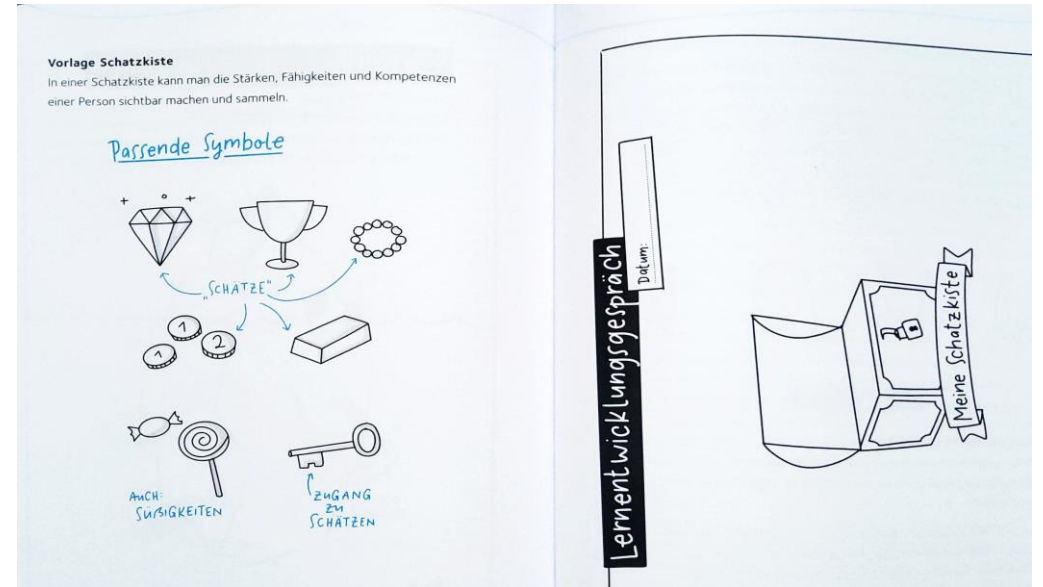 Vorlage Schatzkiste
In einer Schatzkiste kann man die Stärken, Fähigkeiten und Kompetenzen
einer Person sichtbar machen und sammeln.
Passende Symbole
„SCHÄTZE"
1
1
2
AUCH:
SÜßIGKEITEN
ZUGANG
ZU
SCHÄTZEN
Lernentwicklungsgespräch
Datum:
Meine Schatzkiste